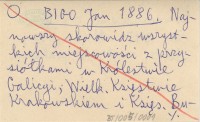 Bigo Jan 1886, Naj-
nowszy skorowidz wszyst-
kich miejscowości z przy-
siółkami w Królestwie
Galicyi, Wielk. Księstwie
Krakowskiem i Księs. Bu-